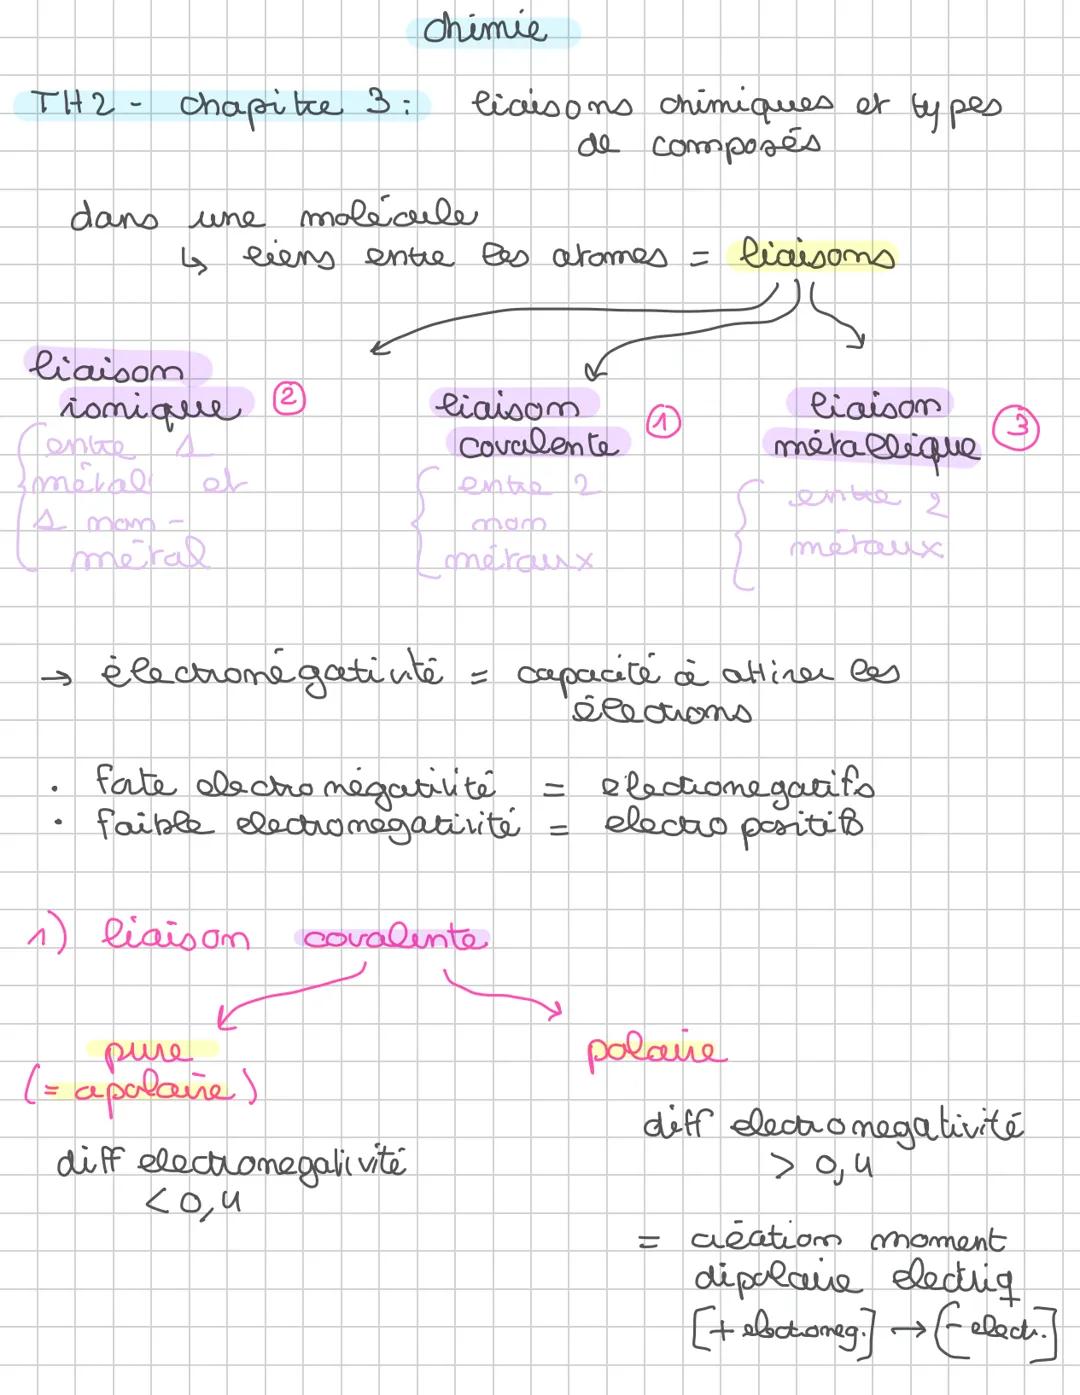 chimie
TH2 - chapitre 3 : liaisons chimiques et types
de composés
dans une molécule
↳ liens entre les atomes = liaisons
liaison
ionique ②
{ entre 1
métal et
1 non-
métal
liaison
covalente ①
{ entre 2
non
métaux
liaison
métallique ③
{ entre 2
métaux
→ électronégativité = capacité à attirer les
électrons
• forte electronégativité = électronegatifs
• faible electronégativité = electro positifs
1) liaison covalente
pure
(= apolaire)
diff electronegativité
< 0,4
polaire
diff electronegativité
> 0,4
= création moment
dipolaire electriq
[+ electroneg.] → [- electr.]